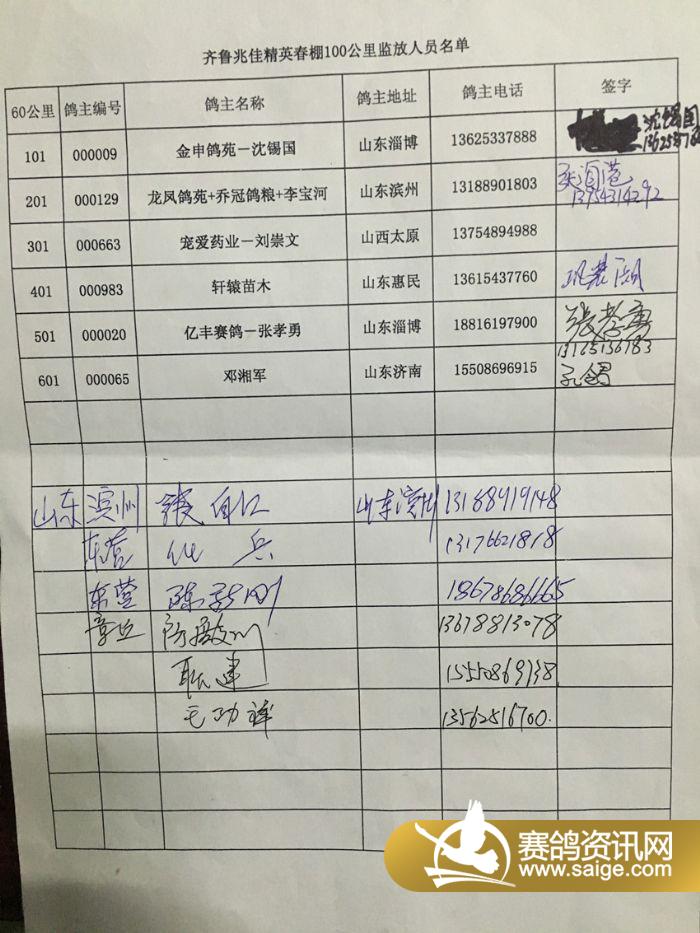 齐鲁兆佳精英春棚100公里监放人员名单
60公里 鸽主编号 鸽主名称 鸽主地址 鸽主电话 签字
101 000009 金申鸽苑－沈锡国 山东淄博 13625337888 沈锡国
201 000129 龙凤鸽苑+乔冠鸽粮+李宝河 山东滨州 13188901803
13754314292
301 000663 宠爱药业－刘崇文 山西太原 13754894988
401 000983 轩辕苗木 山东惠民 13615437760
501 000020 亿丰赛鸽－张孝勇 山东淄博 18816197900 张孝勇
13165136783
601 000065 邓湘军 山东济南 15508696915
山东 滨州 山东滨州 13168919148
东营 兵 13176621818
东营 18678686665
章丘 13678813078
耿建 15550869138
毛功祥 13562516700
赛鸽资讯网
www.saige.com